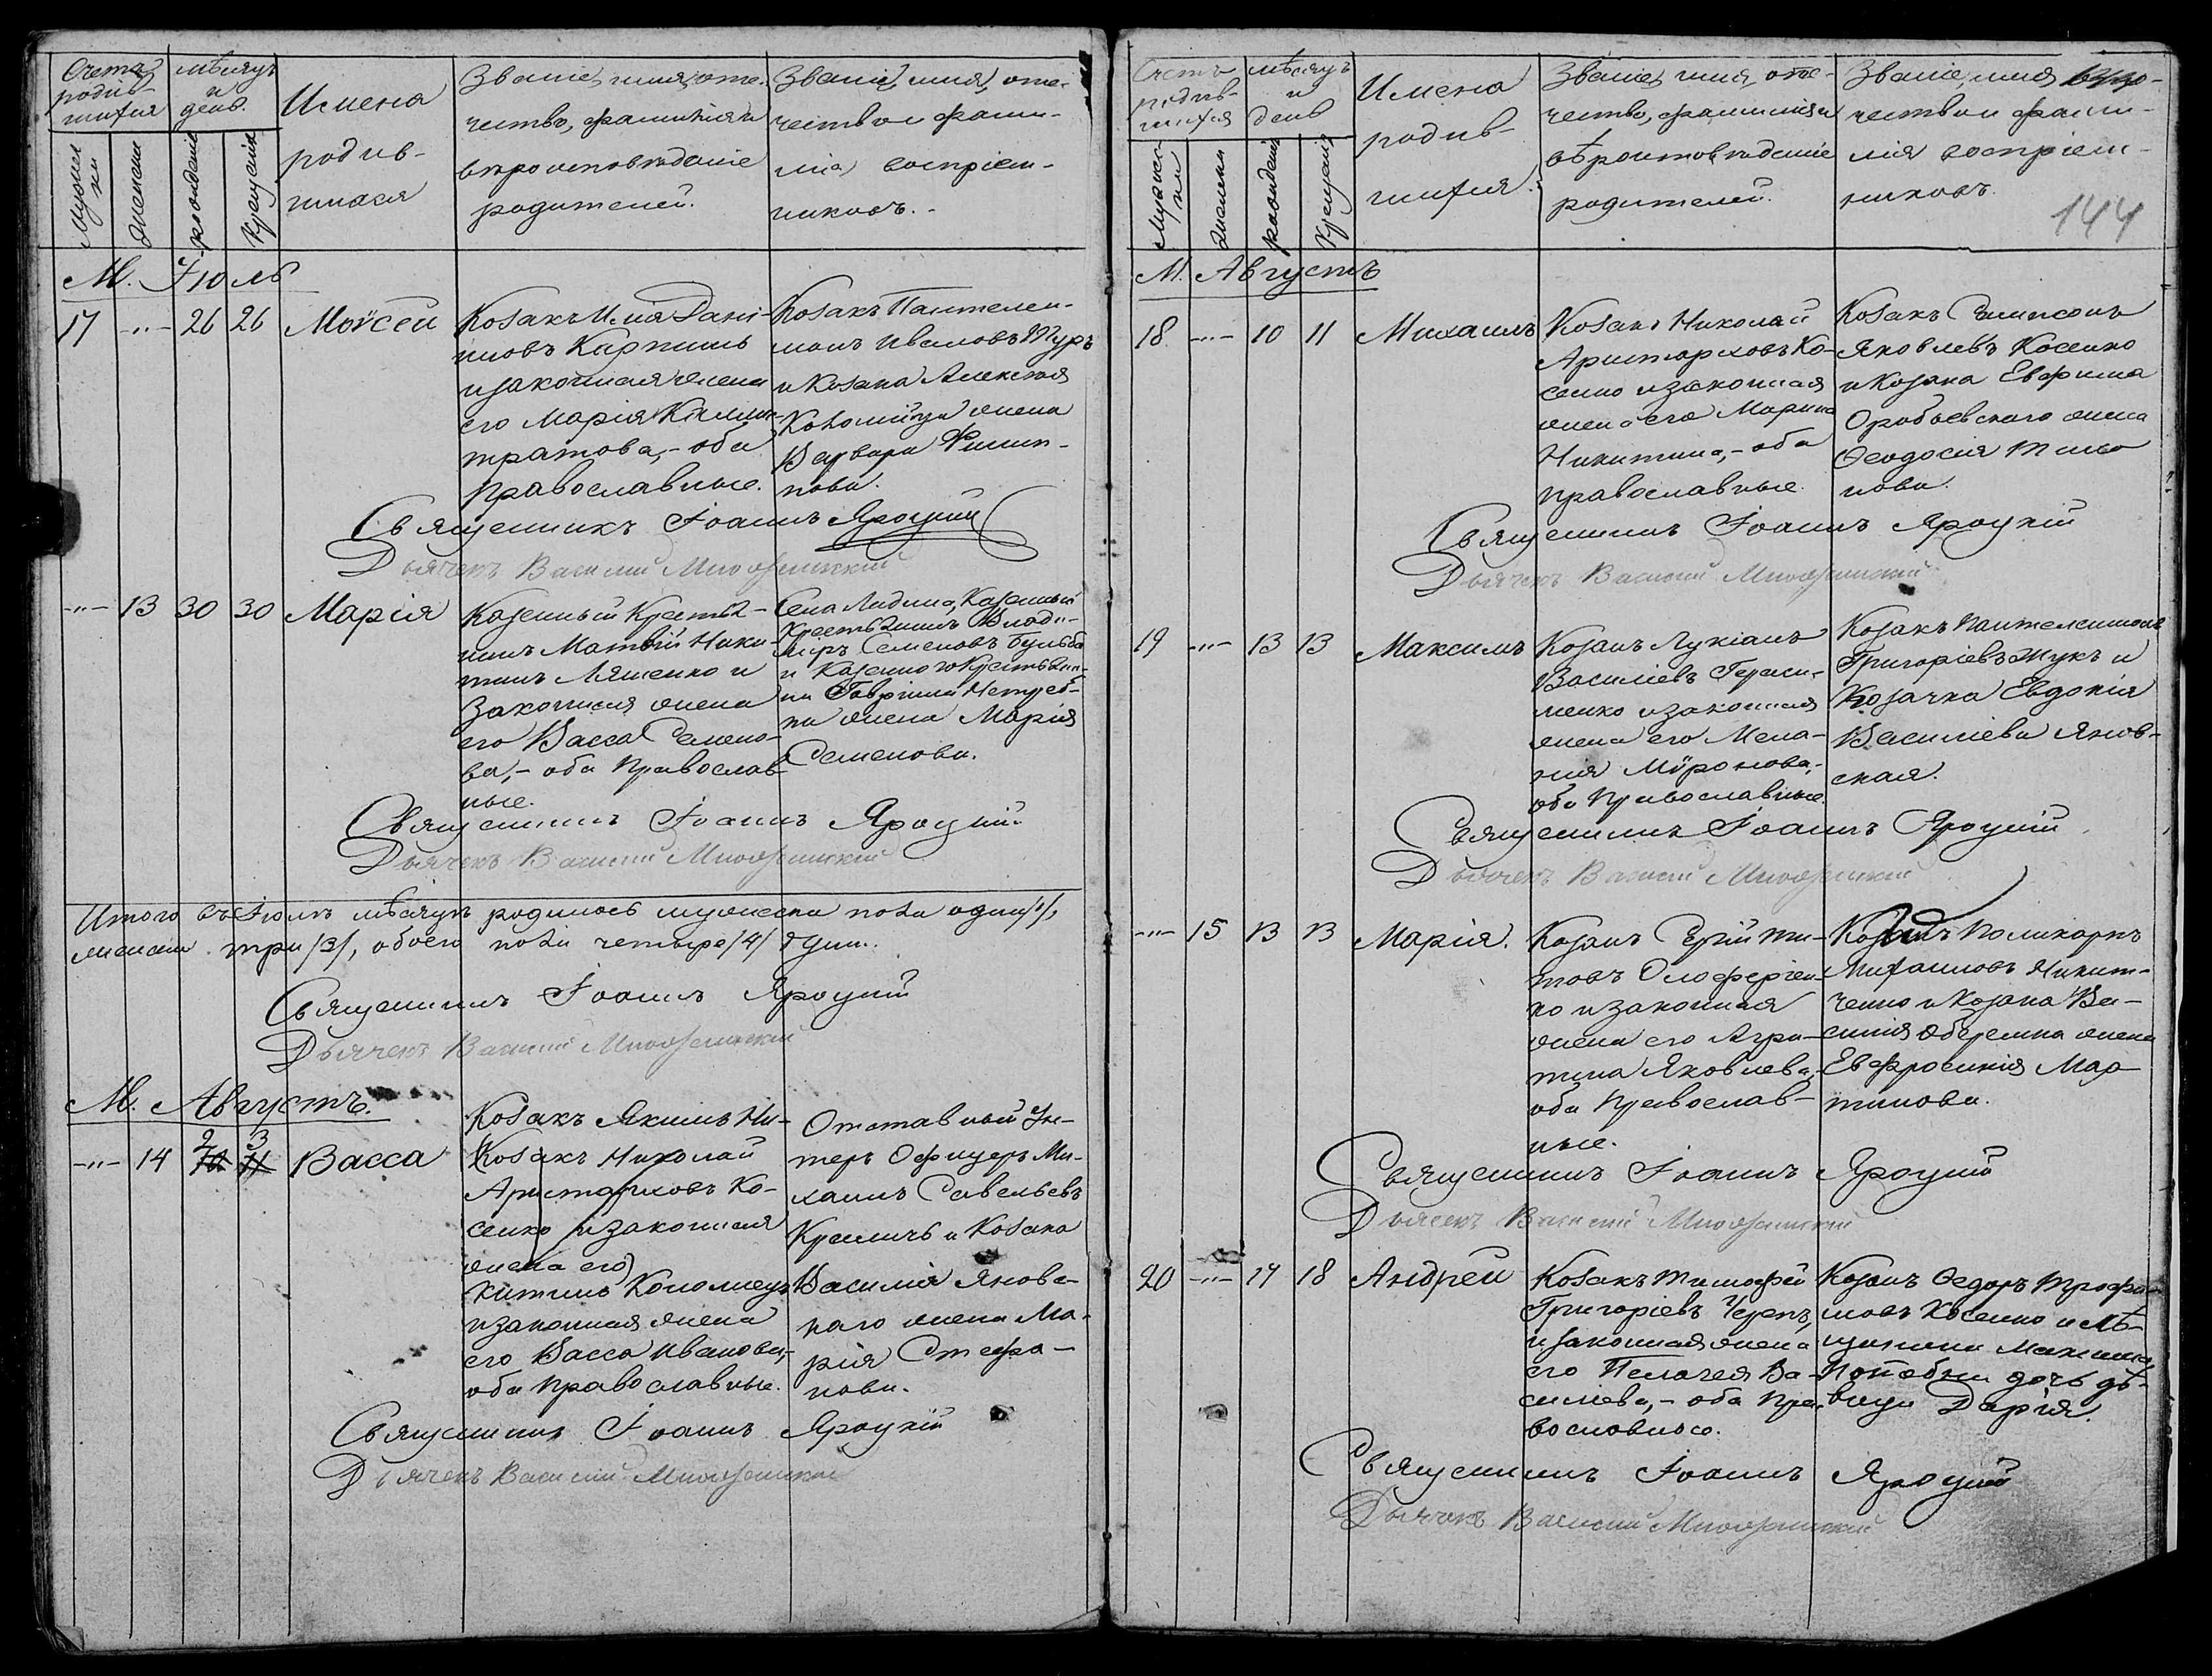 Счетъ родив-
шихся
мѣсяцъ
и
день.
Имена
родив-
шихся
Званіе, имя, оте-
чество, фамилія и
вѣроисповѣданіе
родителей.
Званіе, имя, оте-
чество и фами-
лія воспріем-
никовъ.
мужеска
женска
рожденія
крещенія
М. Іюль
17 -"- 26 26 Моѵсей
Козакъ Илія Дані-
иловъ Карпишъ
и законная жена
его Марія
- оба
православные.
Козакъ Пантелеи-
монъ Ивановъ Туръ
и Козака Алексѣя
Коломійца жена
Варвара Филип-
пова.
Священникъ Іоаннъ Яроцкій
Дьячекъ Василій
-"- 13 30 30 Марія
Казенный Крестья-
нинъ Матвій Ники-
тинъ Ляшенко и
законная жена
его Васса Семено-
ва, - оба Православ-
ные.
Села Лидина, Казенный
Крестьянинъ Влади-
міръ Семеновъ Бульба
и Казеннаго Крестьяни-
на Гавріила Нетреб-
ка жена Марія
Семенова.
Священникъ Іоаннъ Яроцкій
Дьячекъ Василій
Итого въ Іюлѣ мѣсяцѣ родилось мужеска пола одинъ /1/,
женска три /3/, обоего пола четыре /4/ душ.
Священникъ Іоаннъ Яроцкій
Дьячекъ Василій
М. Августъ.
-"- 14 2 3 Васса
Козакъ Якимъ Ни-
Козакъ Николай
Аристарховъ Ко-
сенко и законная
жена его
китинъ Коломіецъ
и законная жена
его Васса Иванова, -
оба православные.
Отставный Ун-
теръ Офицеръ Ми-
хаилъ Савельевъ
и Козака
Василія Яновс-
каго жена Ма-
рія Стефа-
нова.
Священникъ Іоаннъ Яроцкій
Дьячекъ Василій
Счетъ
родив-
шихся
мѣсяцъ
и
день
Имена
родив-
шихся.
Званіе, имя, оте-
чество, фамилія и
вѣроисповѣданіе
родителей.
Званіе, имя,
чество и фами-
лія воспріем-
никовъ.
144
мужеска
женска
рожденія
крещенія
М. Августъ
18. -"- 10 11 Михаилъ
Козакъ Николай
Аристарховъ Ко-
сенко и законная
жена его Марина
Никитина, - оба
православные.
Козакъ Сампсонъ
Яковлевъ Косенко
и Козака Евфима
Оробьевскаго жена
Ѳеодосія
нова.
Священникъ Іоаннъ Яроцкій
Дьячекъ Василій
19 -"- 13 13 Максимъ
Козакъ Лукіанъ
Василіевъ Гераси-
менко и законная
жена его Мела-
нія Мѵронова, -
оба Православные.
Козакъ Пантелеимонъ
Григоріевъ Жукъ и
Козачка Евдокія
Василіева Янов-
ская.
Священникъ Іоаннъ Яроцкій
Дьячекъ Василій
-"- 15 13 13 Марія.
Козакъ Сергій Ти-
товъ Олоферіен-
ко и законная
жена его Агри-
пина Яковлева,
оба Православ-
ные.
Козакъ Поликарпъ
Михаиловъ Никит-
ченко и Козака Ва-
силія Оберемка жена
Евфросинія Мар-
тинова.
Священникъ Іоаннъ Яроцкій
Дьячекъ Василій
20 -"- 17 18 Андрей
Козакъ Тимофей
Григоріевъ Черепъ,
и законная жена
его Пелагея Ва-
силіева, - оба Пра-
вославные.
Козакъ Ѳедоръ Трофи-
мовъ Косенко и мѣ-
щанина Максима
дочь дѣ-
вица Дарія.
Священникъ Іоаннъ Яроцкій
Дьячекъ Василій